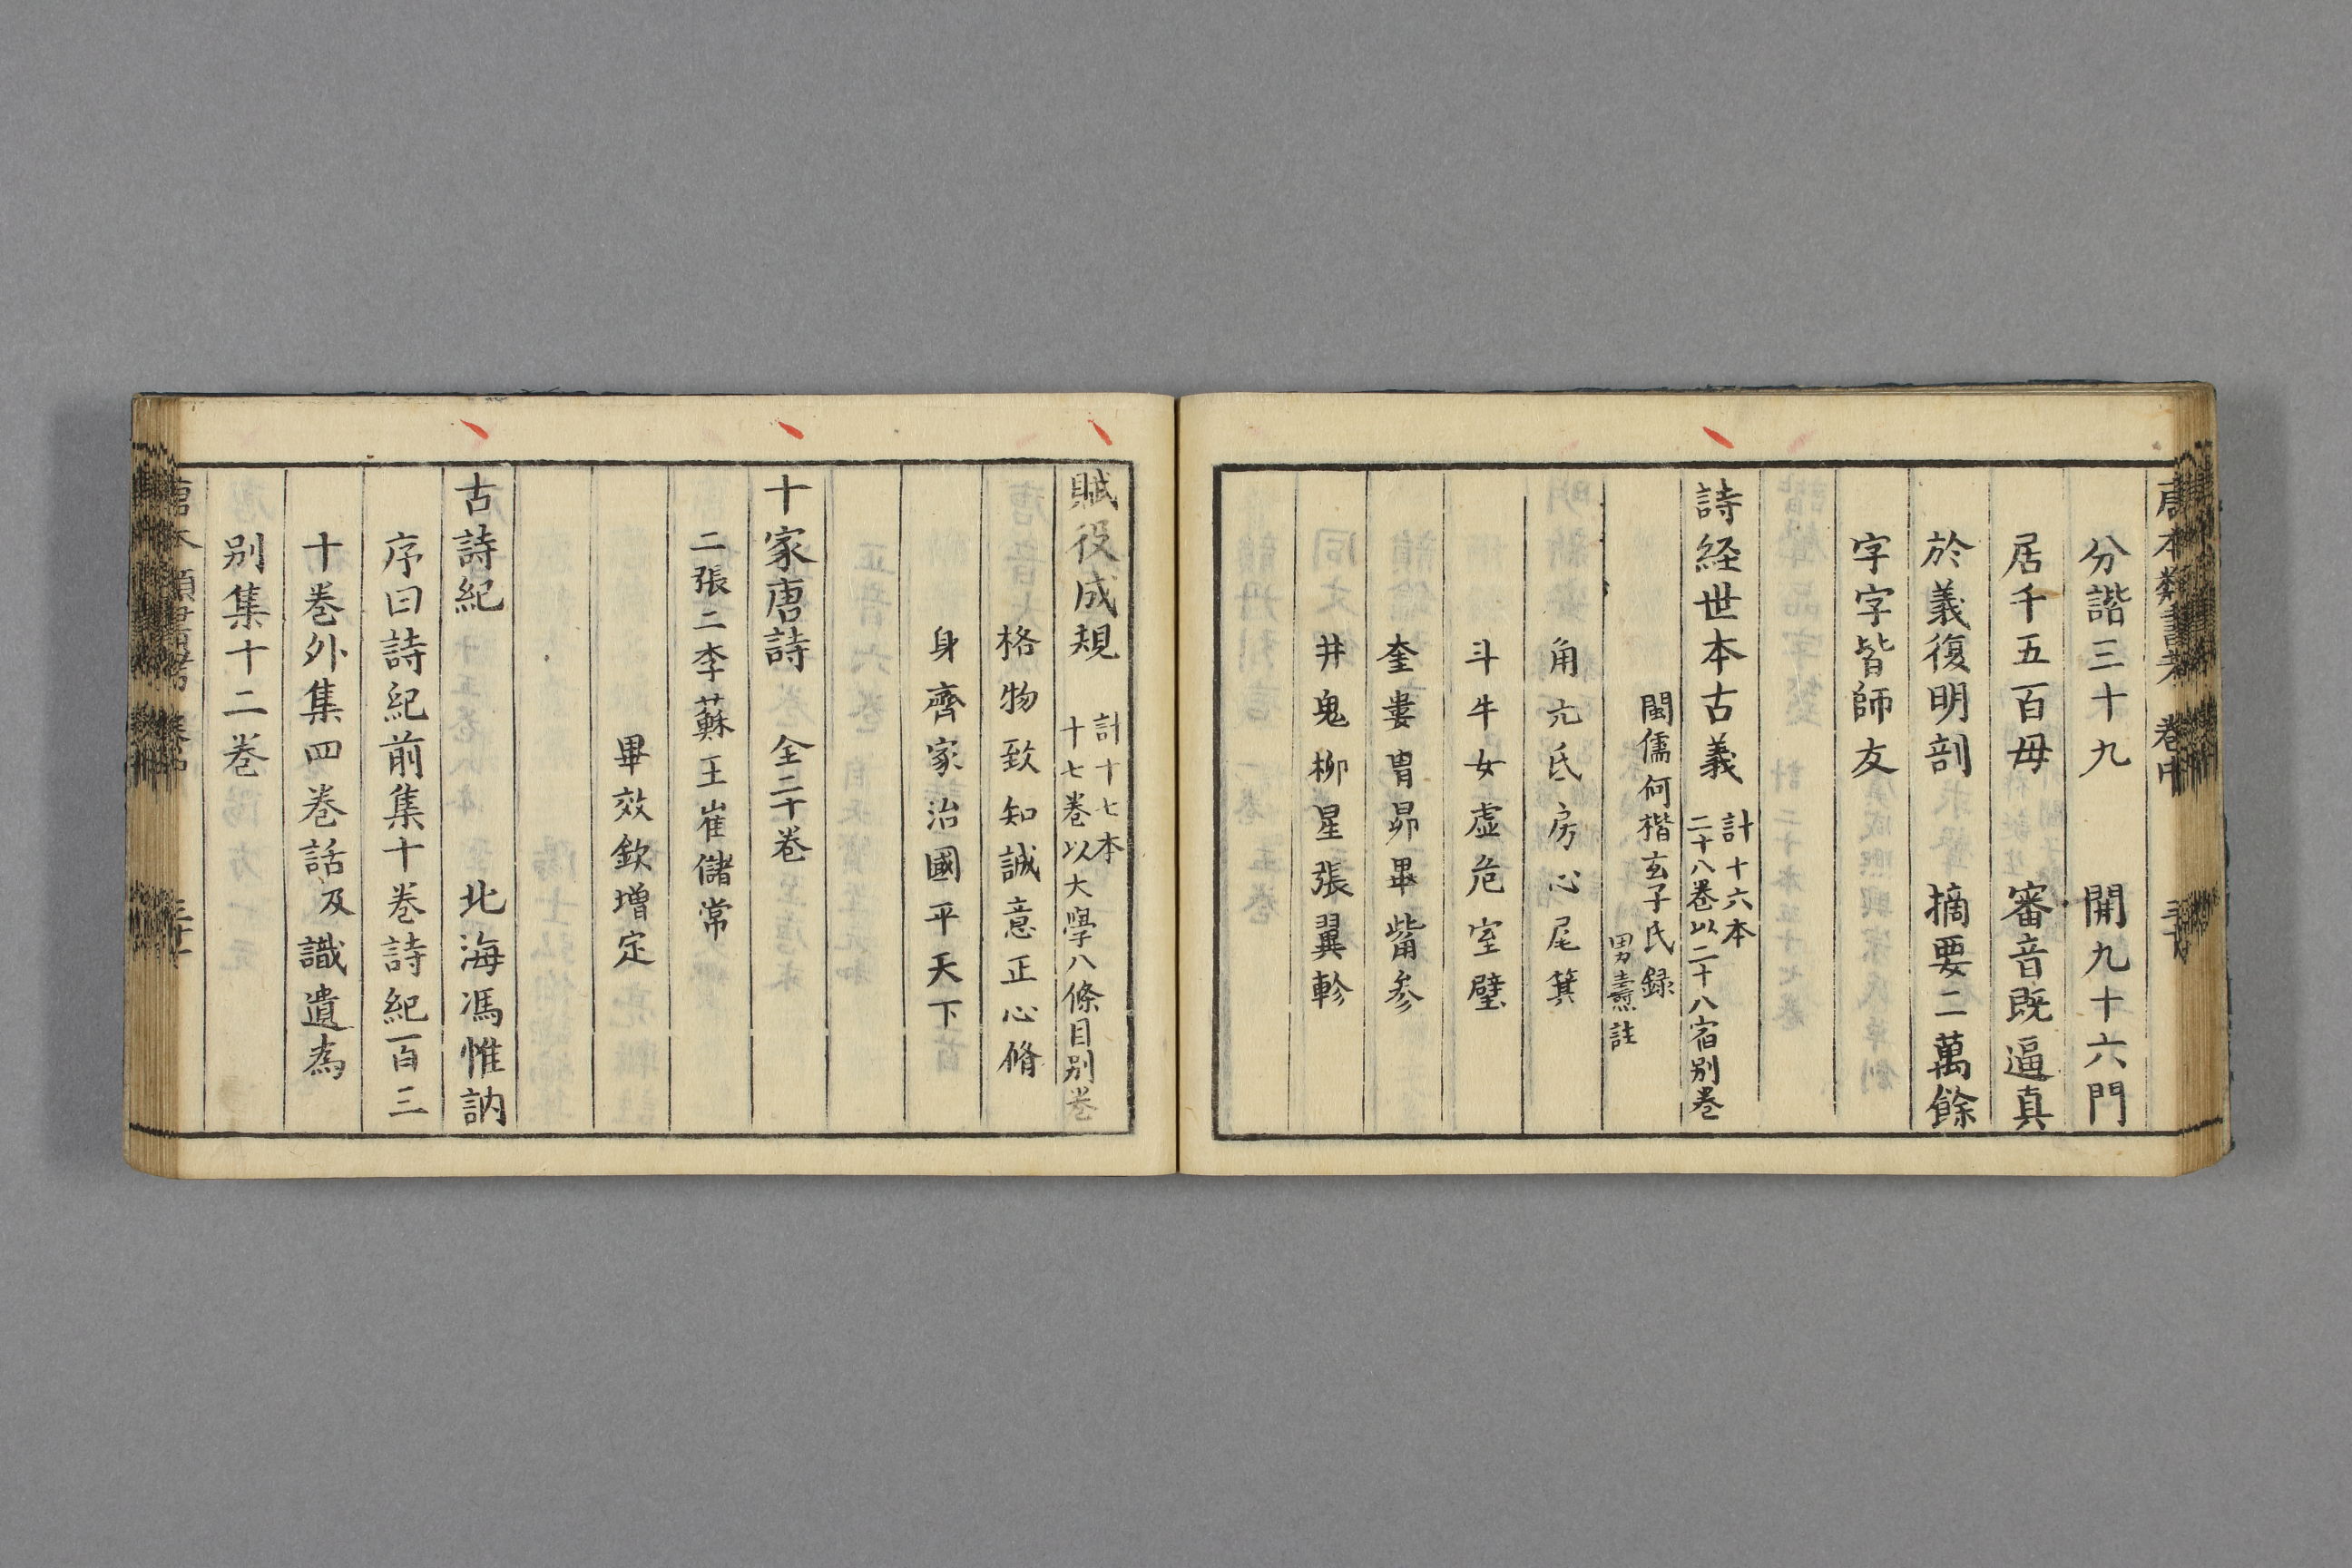 唐本類書考 卷中
分諧三十九 開九十六門
居千五百毋 審音既逼真
於義復明剖 摘要二萬餘
字字皆師友
詩経世本古義 計十六本
二十八卷以二十八宿别卷
閩儒何楷玄子氏録
男燾註
角亢氐房心尾箕
斗牛女虛危室壁
奎婁胃昴畢觜参
井鬼柳星張翼軫
賦役成規 計十七本
十七卷以大學八條目别卷
格物致知誠意正心脩
身齊家治國平天下
十家唐詩 全二十卷
二張二李蘇王崔儲常
畢效欽増定
古詩紀 北海馮惟訥
序曰詩紀前集十卷詩紀百三
十卷外集四卷話及識遺為
别集十二卷